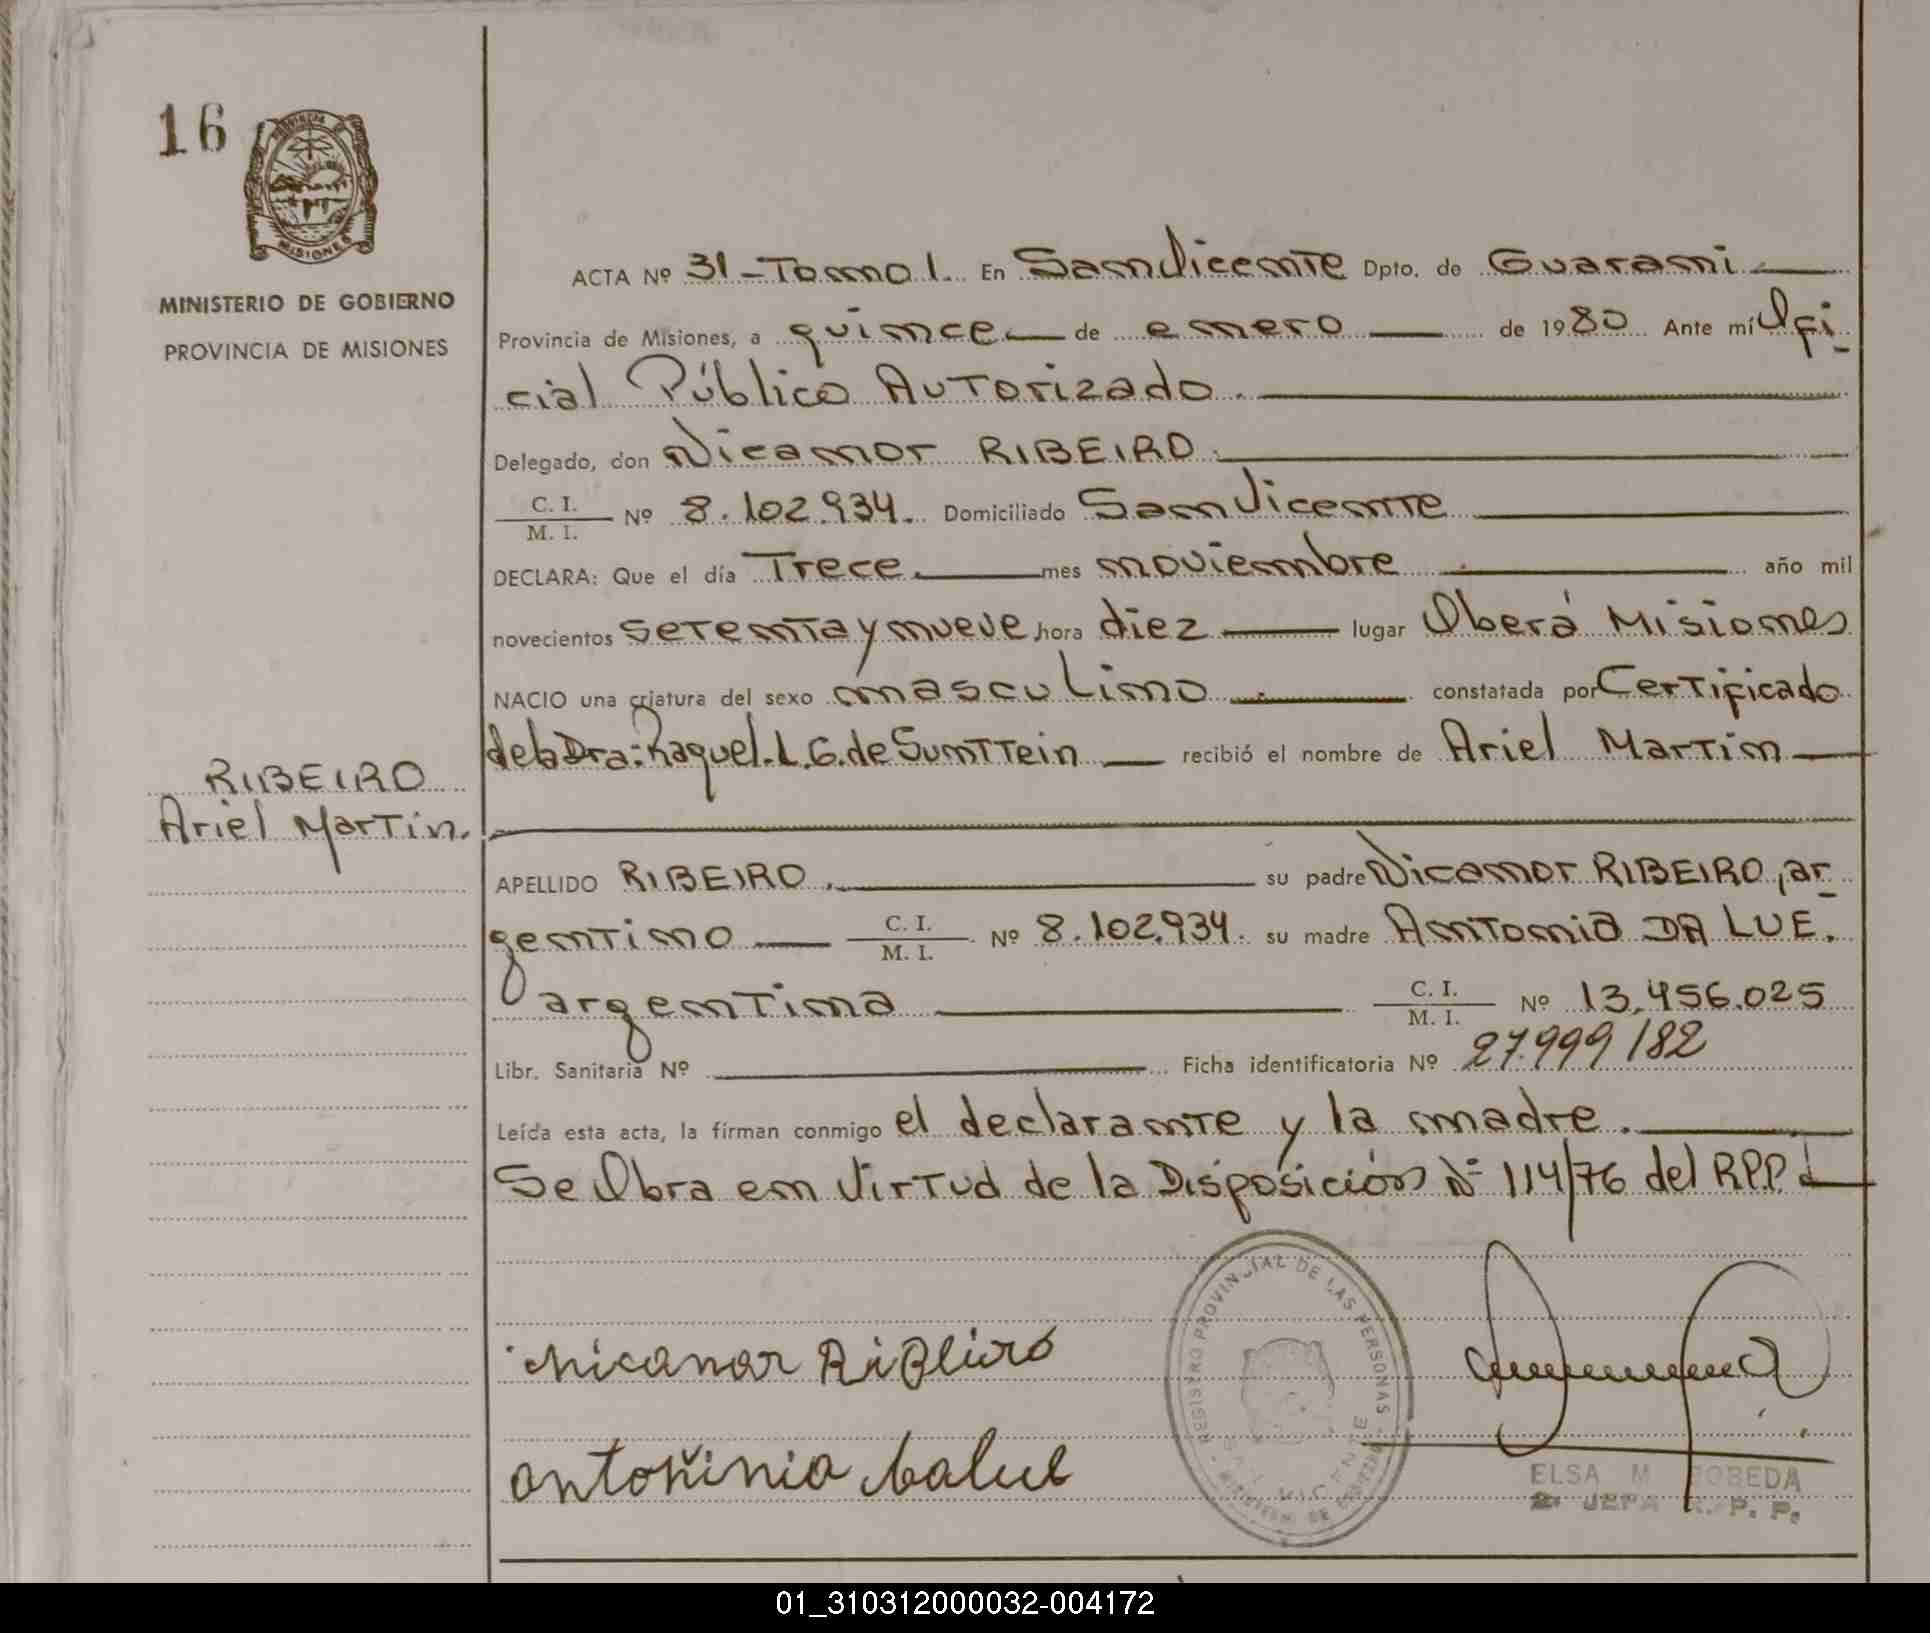 16
PROVINCIA DE
MISIONES
MINISTERIO DE GOBIERNO
PROVINCIA DE MISIONES
ACTA Nº 31 - Tomo 1. En San Vicente Dpto. de Guaraní
Provincia de Misiones, a quince de enero de 1980 Ante mí Ofi
cial Público Autorizado.
Delegado, don Nicanor RIBEIRO.
C. I.
M. I. Nº 8.102.934. Domiciliado San Vicente
DECLARA: Que el día Trece. mes noviembre año mil
novecientos setenta y nueve, hora diez lugar Oberá Misiones
NACIO una criatura del sexo masculino constatada por Certificado
de la Dra: Raquel. L. G. de Sunttein recibió el nombre de Ariel Martin
RIBEIRO
Ariel Martin.
APELLIDO RIBEIRO. su padre Nicanor RIBEIRO, ar
gentino C. I.
M. I. Nº 8.102.934. su madre Antonia DA LUE.
argentina C. I.
M. I. Nº 13.456.025
Libr. Sanitaria Nº Ficha identificatoria Nº 27.999182
Leída esta acta, la firman conmigo el declarante y la madre.
Se Obra en Virtud de la Disposición Nº 114/76 del R.P.P.
REGISTRO PROVINCIAL DE LAS PERSONAS
Nicanor Ribeiro
antoninia dalue
ELSA M BOBEDA
2º JEFA R. P. P.
01_310312000032-004172